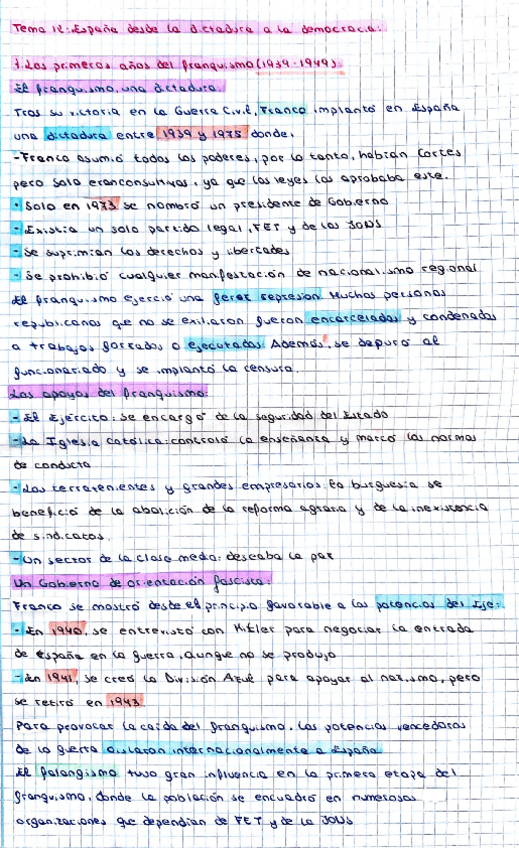 Tema 12: España desde la dictadura a la democracia:
1. Los primeros años del franquismo (1939-1949).
El franquismo, una dictadura.
Tras su victoria en la Guerra Civil, Franco implantó en España
una dictadura entre 1939 y 1975 donde,
-Franco asumió todos los poderes, por lo tanto, habían Cortes
pero solo eran consultivas, ya que las leyes las aprobaba este.
· Solo en 1973 se nombró un presidente de Gobierno
- Existía un solo partido legal, FET y de las JONS
- Se suprimían los derechos y libertades
- Se prohibió cualquier manifestación de nacionalismo regional
El franquismo ejerció una feroz represión Muchas personas
republicanas que no se exiliaron fueron encarceladas y condenadas
a trabajos forzados o ejecutadas Además, se depuró al
funcionariado y se implantó la censura.
Los apoyos del franquismo:
- El Ejército: se encargó de la seguridad del Estado
-La Iglesia católica: controló la enseñanza y marcó las normas
de conducta
-Los terratenientes y grandes empresarios: la burguesía se
benefició de la abolición de la reforma agraria y de la inexistencia
de sindicatos.
-Un sector de la clase media: deseaba la paz
Un Gobierno de orientación fascista:
Franco se mostró desde el principio favorable a las potencias del Eje:
- En 1940, se entrevistó con Hitler para negociar la entrada
de España en la guerra, aunque no se produjo
-En 1941, se creó la División Azul para apoyar al nazismo, pero
se retiró en 1943.
Para provocar la caída del franquismo, las potencias vencedoras
de la guerra aislaron internacionalmente a España.
El falangismo tuvo gran influencia en la primera etapa del
franquismo, donde la población se encuadró en numerosas
organizaciones que dependían de FET y de la JONS